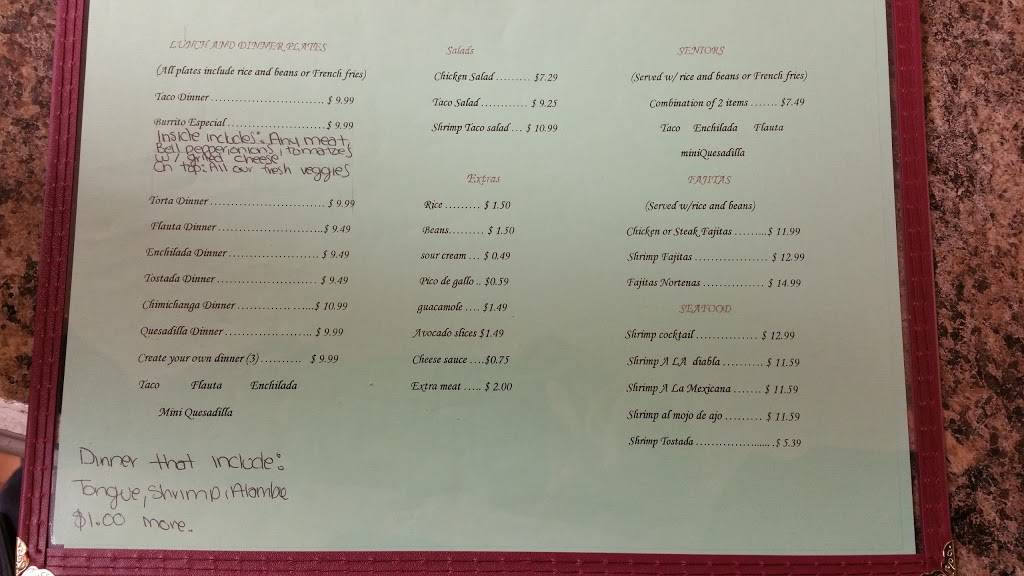 LUNCH AND DINNER PLATES
(All plates include rice and beans or French fries)
Taco Dinner ............................ $ 9.99
Burrito Especial ........................ $ 9.99
Inside includes: Any meat,
Bell pepper, onions, tomatoes
w/ grilled cheese
On top: All our fresh veggies
Torta Dinner ............................. $ 9.99
Flauta Dinner .......................... $ 9.49
Enchilada Dinner ....................... $ 9.49
Tostada Dinner .......................... $ 9.49
Chimichanga Dinner .................... $ 10.99
Quesadilla Dinner ...................... $ 9.99
Create your own dinner (3) .......... $ 9.99
Taco Flauta Enchilada
Mini Quesadilla
Dinner that include:
Tongue, Shrimp, Alambe
$1.00 more.
Salads
Chicken Salad ......... $7.29
Taco Salad ............ $ 9.25
Shrimp Taco salad ... $ 10.99
Extras
Rice ......... $ 1.50
Beans......... $ 1.50
sour cream ... $ 0.49
Pico de gallo .. $0.59
guacamole .... $1.49
Avocado slices $1.49
Cheese sauce ....$0.75
Extra meat ..... $ 2.00
SENIORS
(Served w/ rice and beans or French fries)
Combination of 2 items ....... $7.49
Taco Enchilada Flauta
miniQuesadilla
FAJITAS
(Served w/rice and beans)
Chicken or Steak Fajitas .........$ 11.99
Shrimp Fajitas ................... $ 12.99
Fajitas Nortenas ................ $ 14.99
SEAFOOD
Shrimp cocktail ................ $ 12.99
Shrimp A LA diabla ........... $ 11.59
Shrimp A La Mexicana ....... $ 11.59
Shrimp al mojo de ajo ......... $ 11.59
Shrimp Tostada ....................$ 5.39